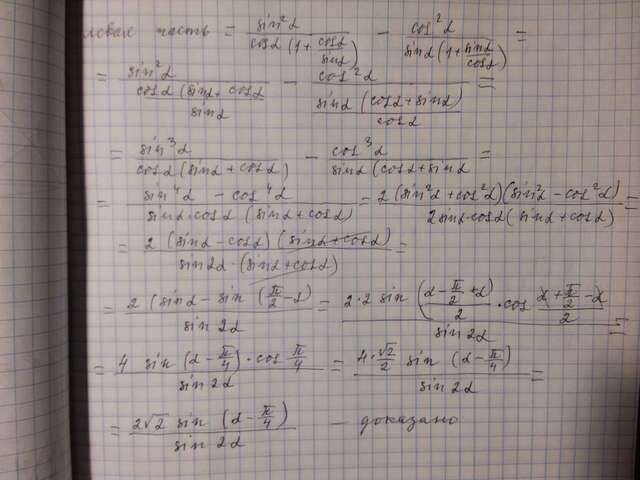 левая часть = sin²α / cosα(1 + cosα/sinα) − cos²α / sinα(1 + sinα/cosα) =
= sin²α / (cosα(sinα + cosα / sinα) − cos²α / (sinα(cosα + sinα) / cosα) =
= sin³α / cosα(sinα + cosα) − cos³α / sinα(cosα + sinα =
= sin⁴α − cos⁴α / sinα·cosα(sinα + cosα) = 2(sin²α + cos²α)(sin²α − cos²α) / 2sinα·cosα(sinα + cosα) =
= 2(sinα − cosα)(sinα + cosα) / sin2α·(sinα + cosα) =
= 2(sinα − sin(π/2 − α) / sin2α = 2·2 sin (α − π/2 + α)/2 · cos (α + π/2 − α)/2 / sin2α =
= 4 sin(α − π/4)·cos π/4 / sin2α = 4·√2/2 sin(α − π/4) / sin2α =
= 2√2 sin(α − π/4) / sin2α — доказано